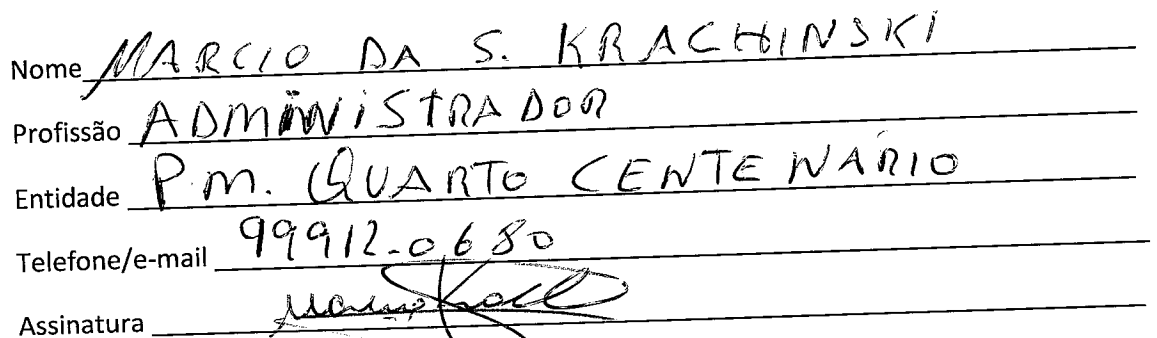 Nome MARCIO DA S. KRACHINSKI
Profissão ADMINISTRADOR
Entidade P.M. QUARTO CENTENÁRIO
Telefone/e-mail 99912-0680
Assinatura